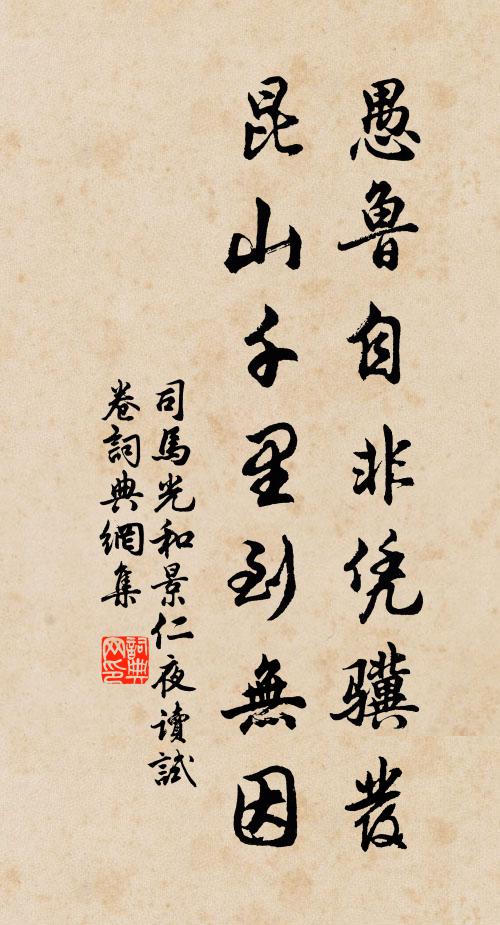 愚魯自非凭驥發
昆山千里到無因
司馬光和景仁夜讀試
卷詞典網集
詞典網印